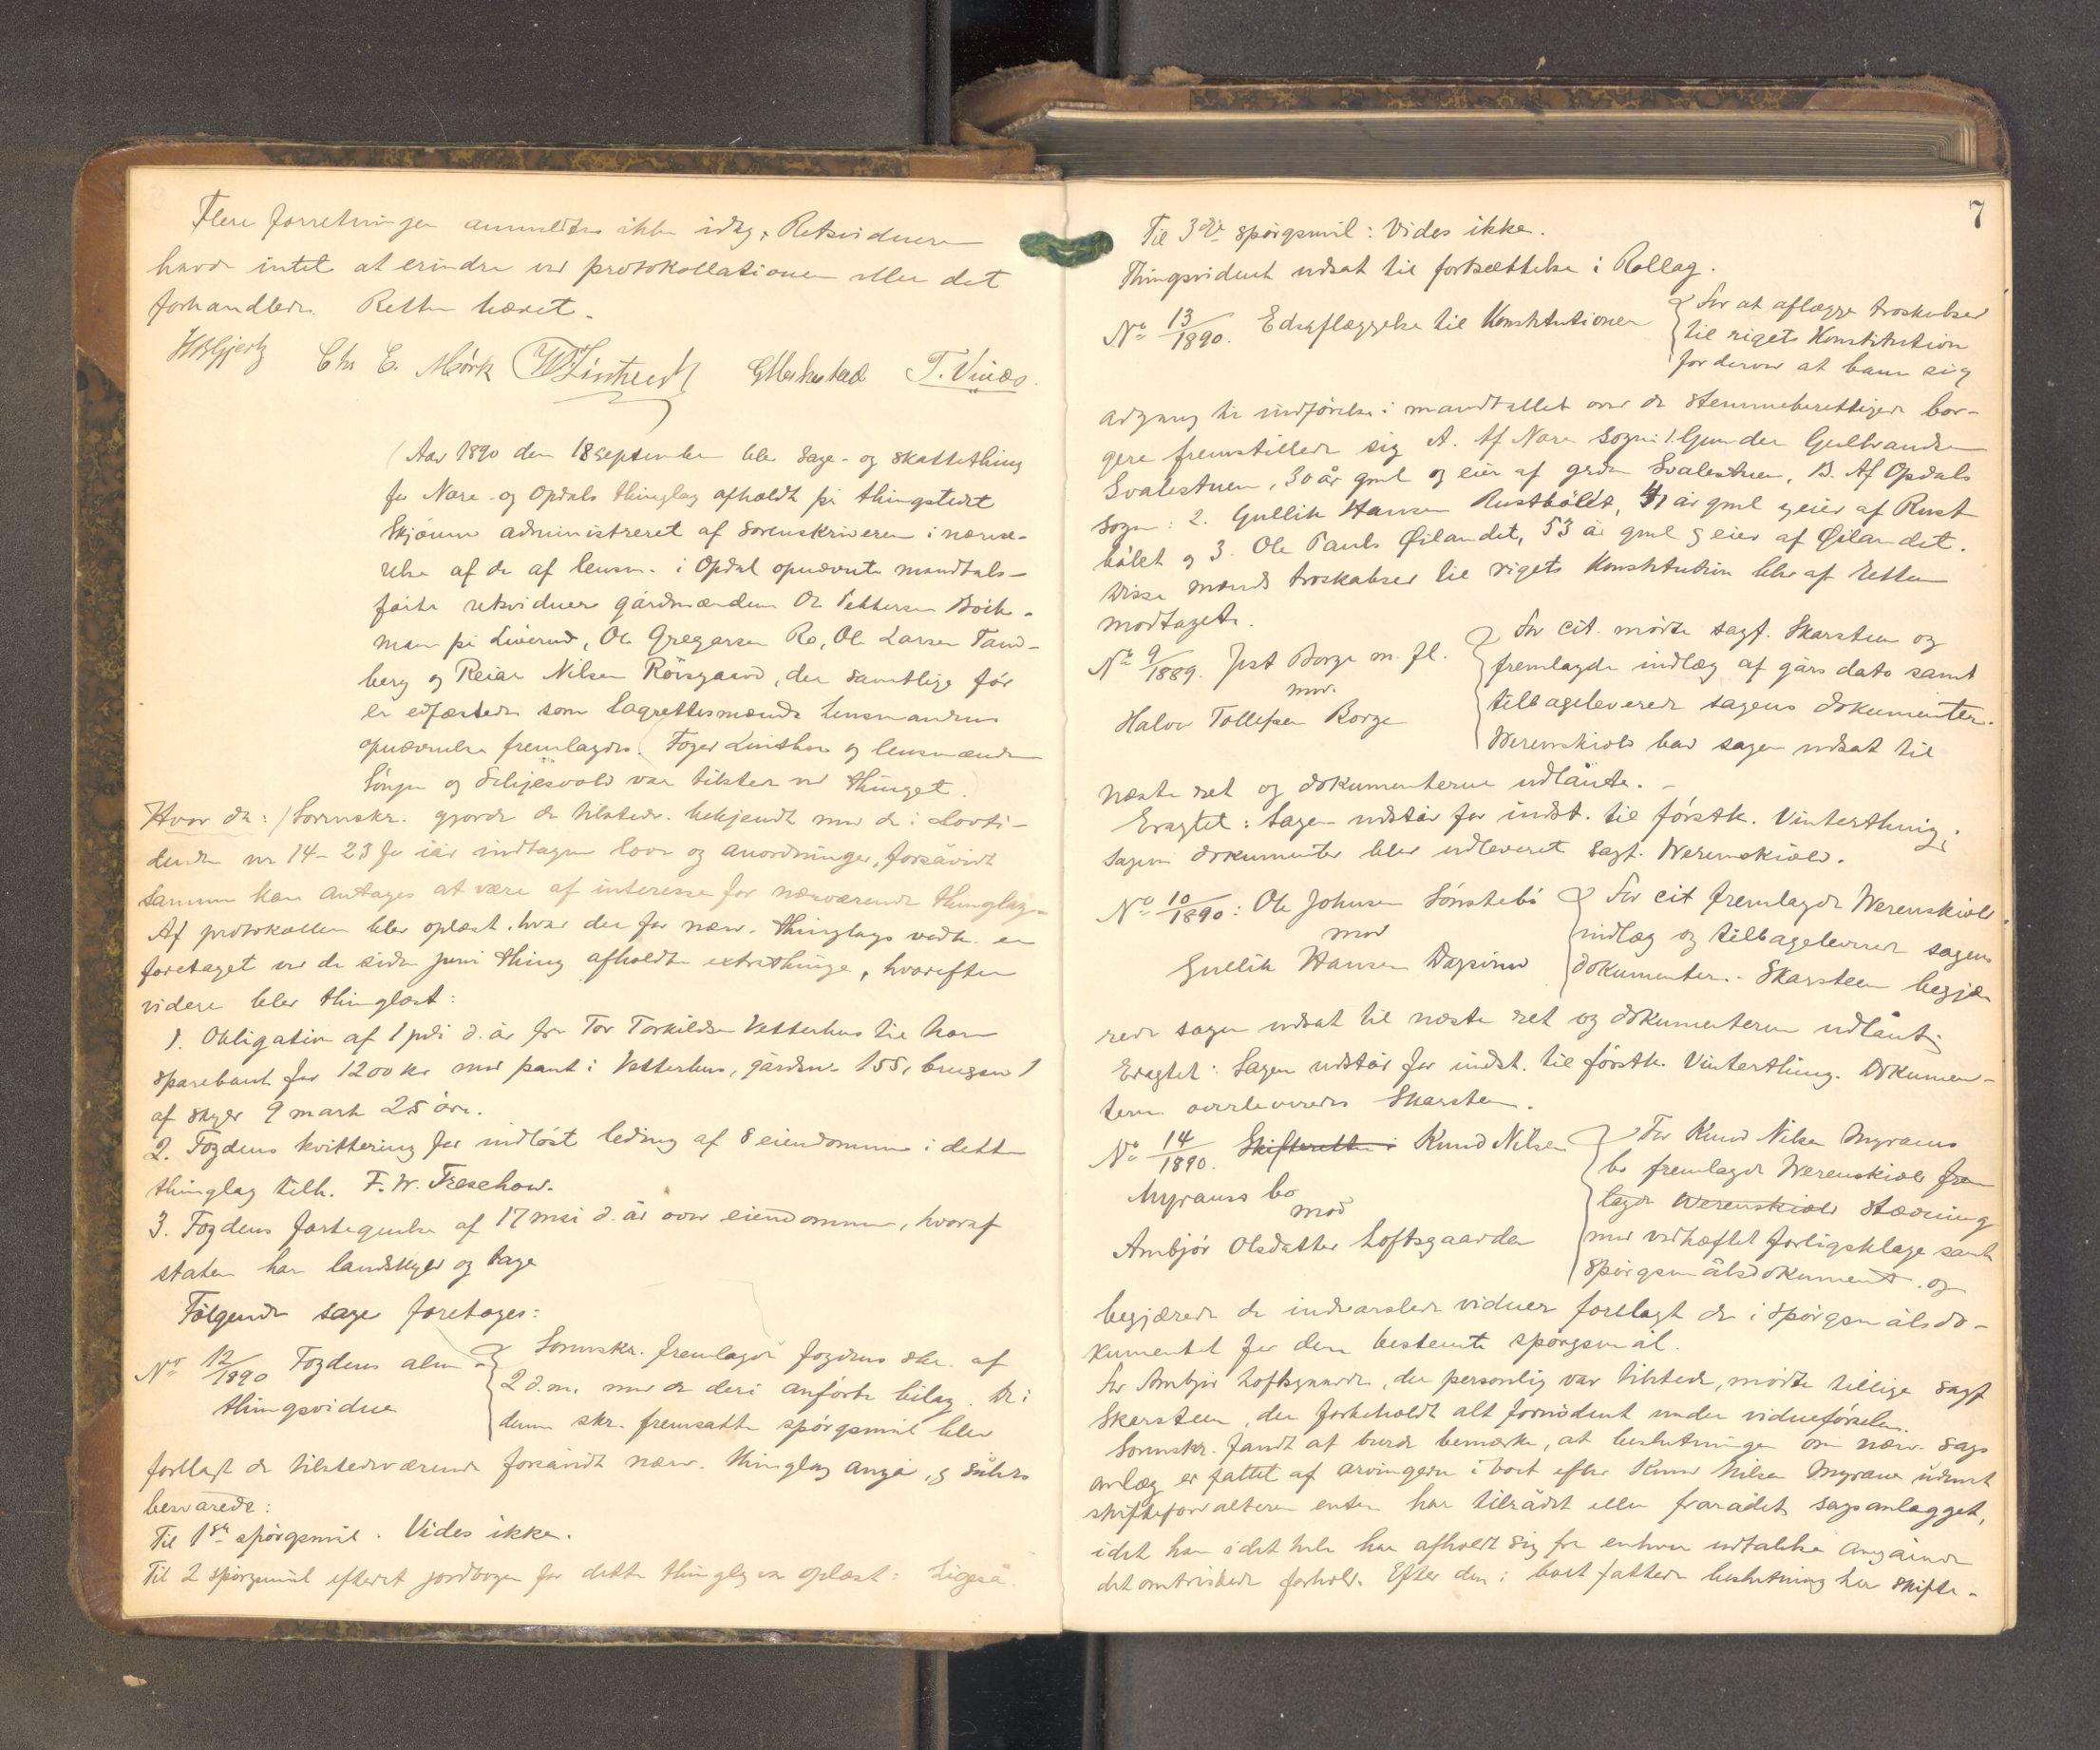 Flere forretninger anmeldtes ikke idag, Retsvidnerne
havde intet at erindre ved protokollationen eller det
forhandlede. Retten hævet.
Chr E. Mørk T. Vinæs.
Aar 1890 den 18 september blev Sage- og Skattething
for Nore- og Opdals thinglag afholdt på thingstedet
Skjønne administreret af sorenskriveren i nærvæ-
relse af de af lensm. i Opdal opnævnte mandtals-
førte retsvidner gårdmændene Ole Pettersen Boik-
man på Liverud, Ole Gregarsen Ro, Ole Larsen Tand-
berg og Reiar Nilsen Röisgaard, der samtlige før
er edfæstede som Lagrettesmænd. Lensmandens
opnævnelse fremlagdes. Foged Linthoe og lensmændene
og var tilstede ved thinget.
Hvor da: / Sorenskr. gjorde de tilstedev. bekjendt med de i Lovti-
dende nr 14-23 for iår indtagne love og anordninger, forsåvidt
samme kan antages at være af interesse for nærværende thinglag.
Af protokollen blev oplæst, hvad der for nærv. thinglags vedk. er
foretaget ved de siden juni thing afholdte extrathinge, hvorefter
videre blev thinglæst:
1. Obligation af 1 juli d. år fra Tor Torkildsen Vetterhus til
sparebank for 1200 kr med pant i Vetterhus, gårdsn. 155, brugsn 1
af skyld 9 mark 25 öre.
2. Fogdens kvittering for indløst leding af 8 eiendomme i dette
thinglag tilh. F. W. Treschow.
3. Fogdens fortegnelse af 17 mai d. år over eiendomme, hvoraf
staten har landskyld og bøxel
Følgende sager foretoges:
No 12/1890 Fogdens alm.
thingsvidne
Sorenskr. fremlagde fogdens skr. af
2 d.m. med de deri anførte bilag. De i
denne skr. fremsatte spørgsmål blev
forelagt de tilstedeværende forsåvidt nærv. thinglag angå, og således
besvarede:
Til 1ste spørgsmål. Vides ikke.
Til 2 spørgsmål efterat jordbogen for dette thinglag var oplæst: Ligeså.
7
Til 3die spørgsmål: Vides ikke.
Thingsvidnet udsat til fortsættelse i Rollag.
No 13/1890. Edsaflæggelse til Konstitutionen
For at aflægge troskabsed
til rigets Konstitution
for derved at bane sig
adgang til indførelse i mandtallet over de stemmeberettigede bor-
gere fremstillede sig A. Af Nore Sogn: 1. Gunder Gulbrandsen
Svalestuen, 30 år gml og eier af gården Svalestuen, B. Af Opdals
Sogn: 2. Gullik Hansen Rustbölet, 41 år gml og eier af Rust
bölet og 3. Ole Pauls Øilandet, 53 år gml og eier af Øilandet.
Disse mænds troskabsed til rigets Konstitution blev af Retten
modtaget.
No 9/1889. Jest Borge m. fl.
mod
Halvor Tollefsen Borge
For cit. mødte sagf. Skarsteen og
fremlagde indlæg af gårs dato samt
tilbageleverede sagens dokumenter.
Werenskiold bad sagen udsat til
næste ret og dokumenterne udlånte. -
Eragtet: Sagen udstår for indst. til førstk. Vinterthing;
sagens dokumenter blev udleveret sagf. Werenskiold.
No 10/1890: Ole Johnsen Sönstebö
mod
Gullik Hansen
For cit fremlagde Werenskiold
indlæg og tilbageleverede sagens
dokumenter. - Skarsteen begjæ-
rede sagen udsat til næste ret og dokumenterne udlånt;
Eragtet: Sagen udstår for indst. til førstk. Vinterthing. Dokumen-
terne overleveredes Skarsteen.
No 14/1890. Skifteretten i Knud Nilsen
Myranss bo
mod
Ambjør Olsdatter Loftsgaarden
For Knud Nilsen Myrans
bo fremlagde Werenskiold frem
lagde Werenskiold stævning
med vedhæftet forligsklage samt
spørgsmålsdokument og
begjærede de indvarslede vidner forelagt de i spørgsmålsdo-
kumentet for dem bestemte spørgsmål.
For Ambjør Loftsgaarden, der personlig var tilstede, mødte tillige sagf
Skarsteen, der forbeholdt alt fornødent under vidneførselen.
Sorenskr. fandt at burde bemærke, at beslutningen om nærv. sags
anlæg er fattet af arvingerne i boet efter Knud Nilsen Myrane uden at
skifteforvalteren enten har tilrådet eller frarådet sagsanlægget,
idet han i det hele har afholdt sig fra enhver udtalelse angående
det omtvistede forhold. Efter den i boet fattede beslutning har skifte-